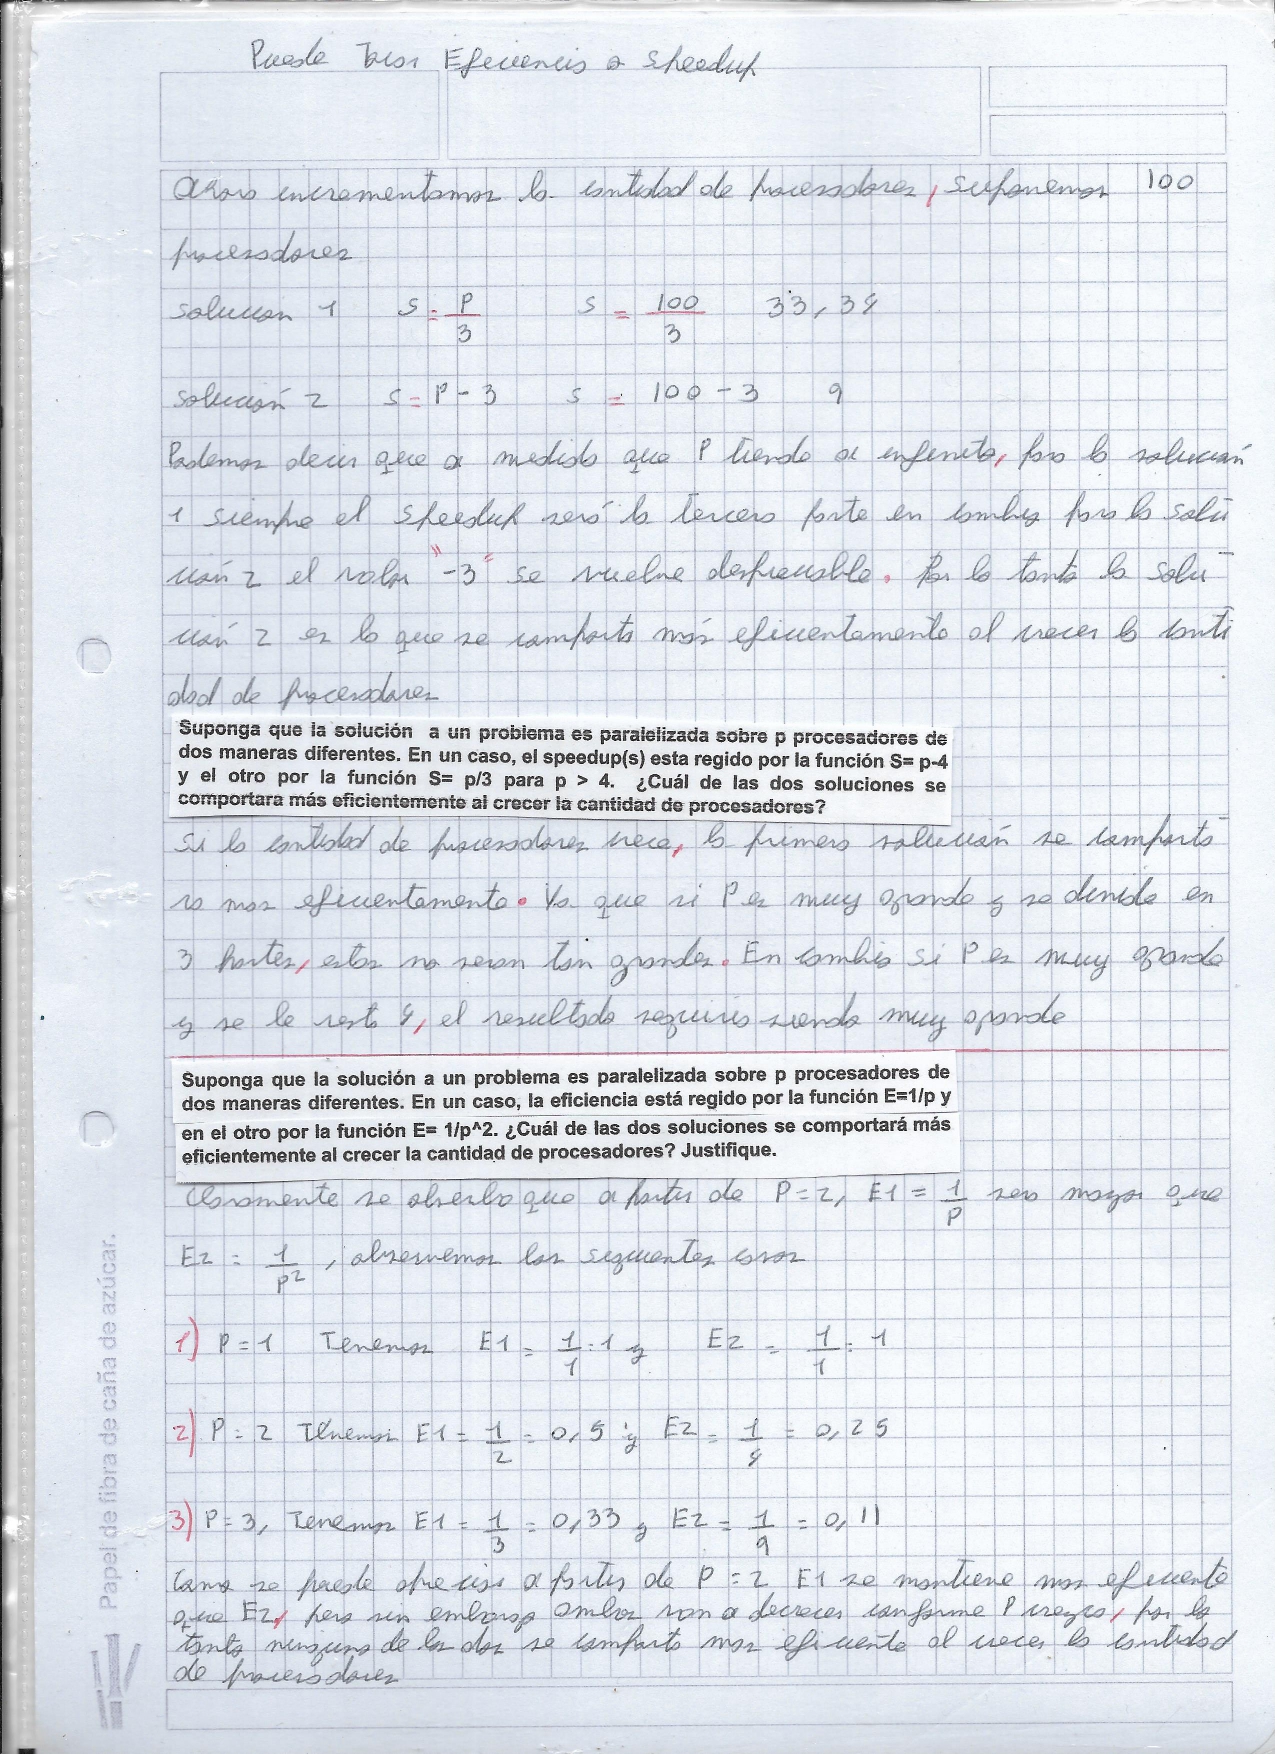 Puede Tocar Eficiencia o Speedup
Ahora incrementamos la cantidad de procesadores, suponemos 100
procesadores
solución 1 S = P/3 S = 100/3 33,34
solución 2 S = P - 3 S = 100 - 3 9
Podemos decir que a medida que P tiende a infinito, para la solución
1 siempre el speedup será la tercera parte en cambio para la solu-
ción 2 el valor "-3" se vuelve despreciable. Por lo tanto la solu-
ción 2 es la que se comporta más eficientemente al crecer la canti
dad de procesadores
Suponga que la solución a un problema es paralelizada sobre p procesadores de
dos maneras diferentes. En un caso, el speedup(s) esta regido por la función S= p-4
y el otro por la función S= p/3 para p > 4. ¿Cuál de las dos soluciones se
comportara más eficientemente al crecer la cantidad de procesadores?
Si la cantidad de procesadores crece, la primera solución se comporta
ra mas eficientemente. Ya que si P es muy grande y se divide en
3 partes, estas no seran tan grandes. En cambio si P es muy grande
y se le resta 4, el resultado seguiria siendo muy grande
Suponga que la solución a un problema es paralelizada sobre p procesadores de
dos maneras diferentes. En un caso, la eficiencia está regido por la función E=1/p y
en el otro por la función E= 1/p^2. ¿Cuál de las dos soluciones se comportará más
eficientemente al crecer la cantidad de procesadores? Justifique.
Claramente se observa que a partir de P=2, E1 = 1/P sera mayor que
E2 = 1/P², observemos los siguientes casos
1) P=1 Tenemos E1 = 1/1 = 1 y E2 = 1/1 = 1
2) P=2 Tenemos E1 = 1/2 = 0,5 y E2 = 1/4 = 0,25
3) P=3, Tenemos E1 = 1/3 = 0,33 y E2 = 1/9 = 0,11
Como se puede apreciar a partir de P=2 E1 se mantiene mas eficiente
que E2, pero sin embargo ambas van a decrecer conforme P crezca, por lo
tanto ninguna de las dos se comporta mas eficiente al crecer la cantidad
de procesadores
Papel de fibra de caña de azúcar.